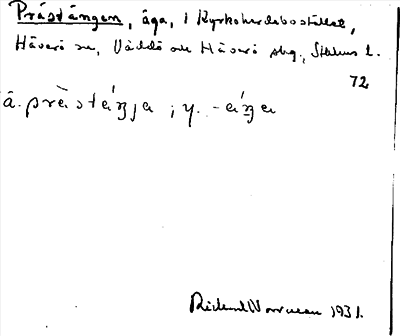 Prästängen, äga, i Kyrkoherdebostället,
Häverö sn, Väddö och Häverö skg., Sthlms l.
72
ä. prὰstáŋja ; y. -áŋa
Rickard Norrman 1931.